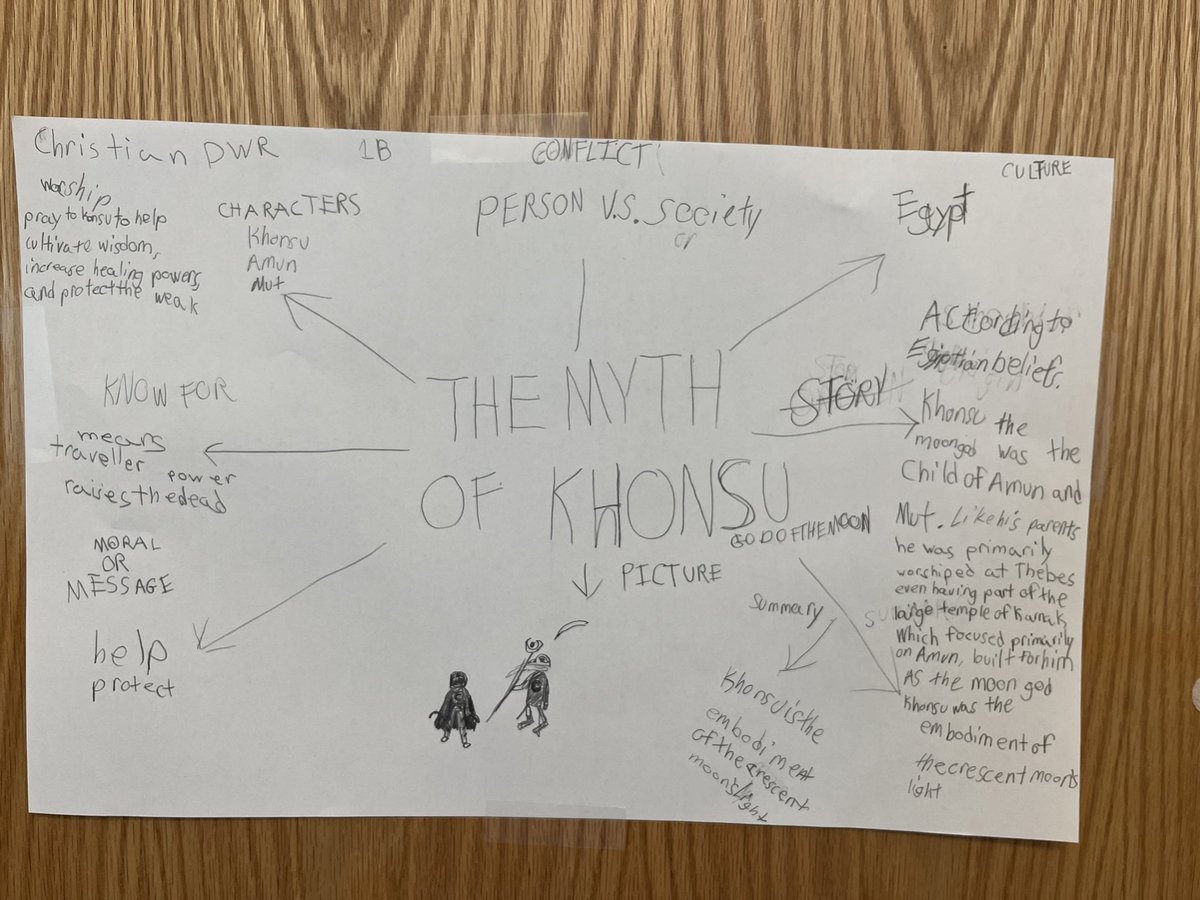 Christian DWR 1B
CONFLICT
CULTURE
worship
pray to Konsu to help
cultivate wisdom,
increase healing powers,
and protect the weak
CHARACTERS
Khonsu
Amun
Mut
PERSON V.S. society
or
Egypt
THE MYTH
OF KHONSU
GOD OF THE MOON
KNOW FOR
means
traveller power
raises the dead
MORAL
OR
MESSAGE
help
protect
PICTURE
STORY
According to
Egiptian beliefs.
Khonsu the
moongod was the
Child of Amun and
Mut. Like his parents
he was primarily
worshiped at Thebes
even having part of the
large temple of Karnak,
which focused primarily
on Amun, built for him
As the moon god
Khonsu was the
embodiment of
the crescent moon's
light
summary
Khonsu is the
embodiment
of the crescent
moon's light